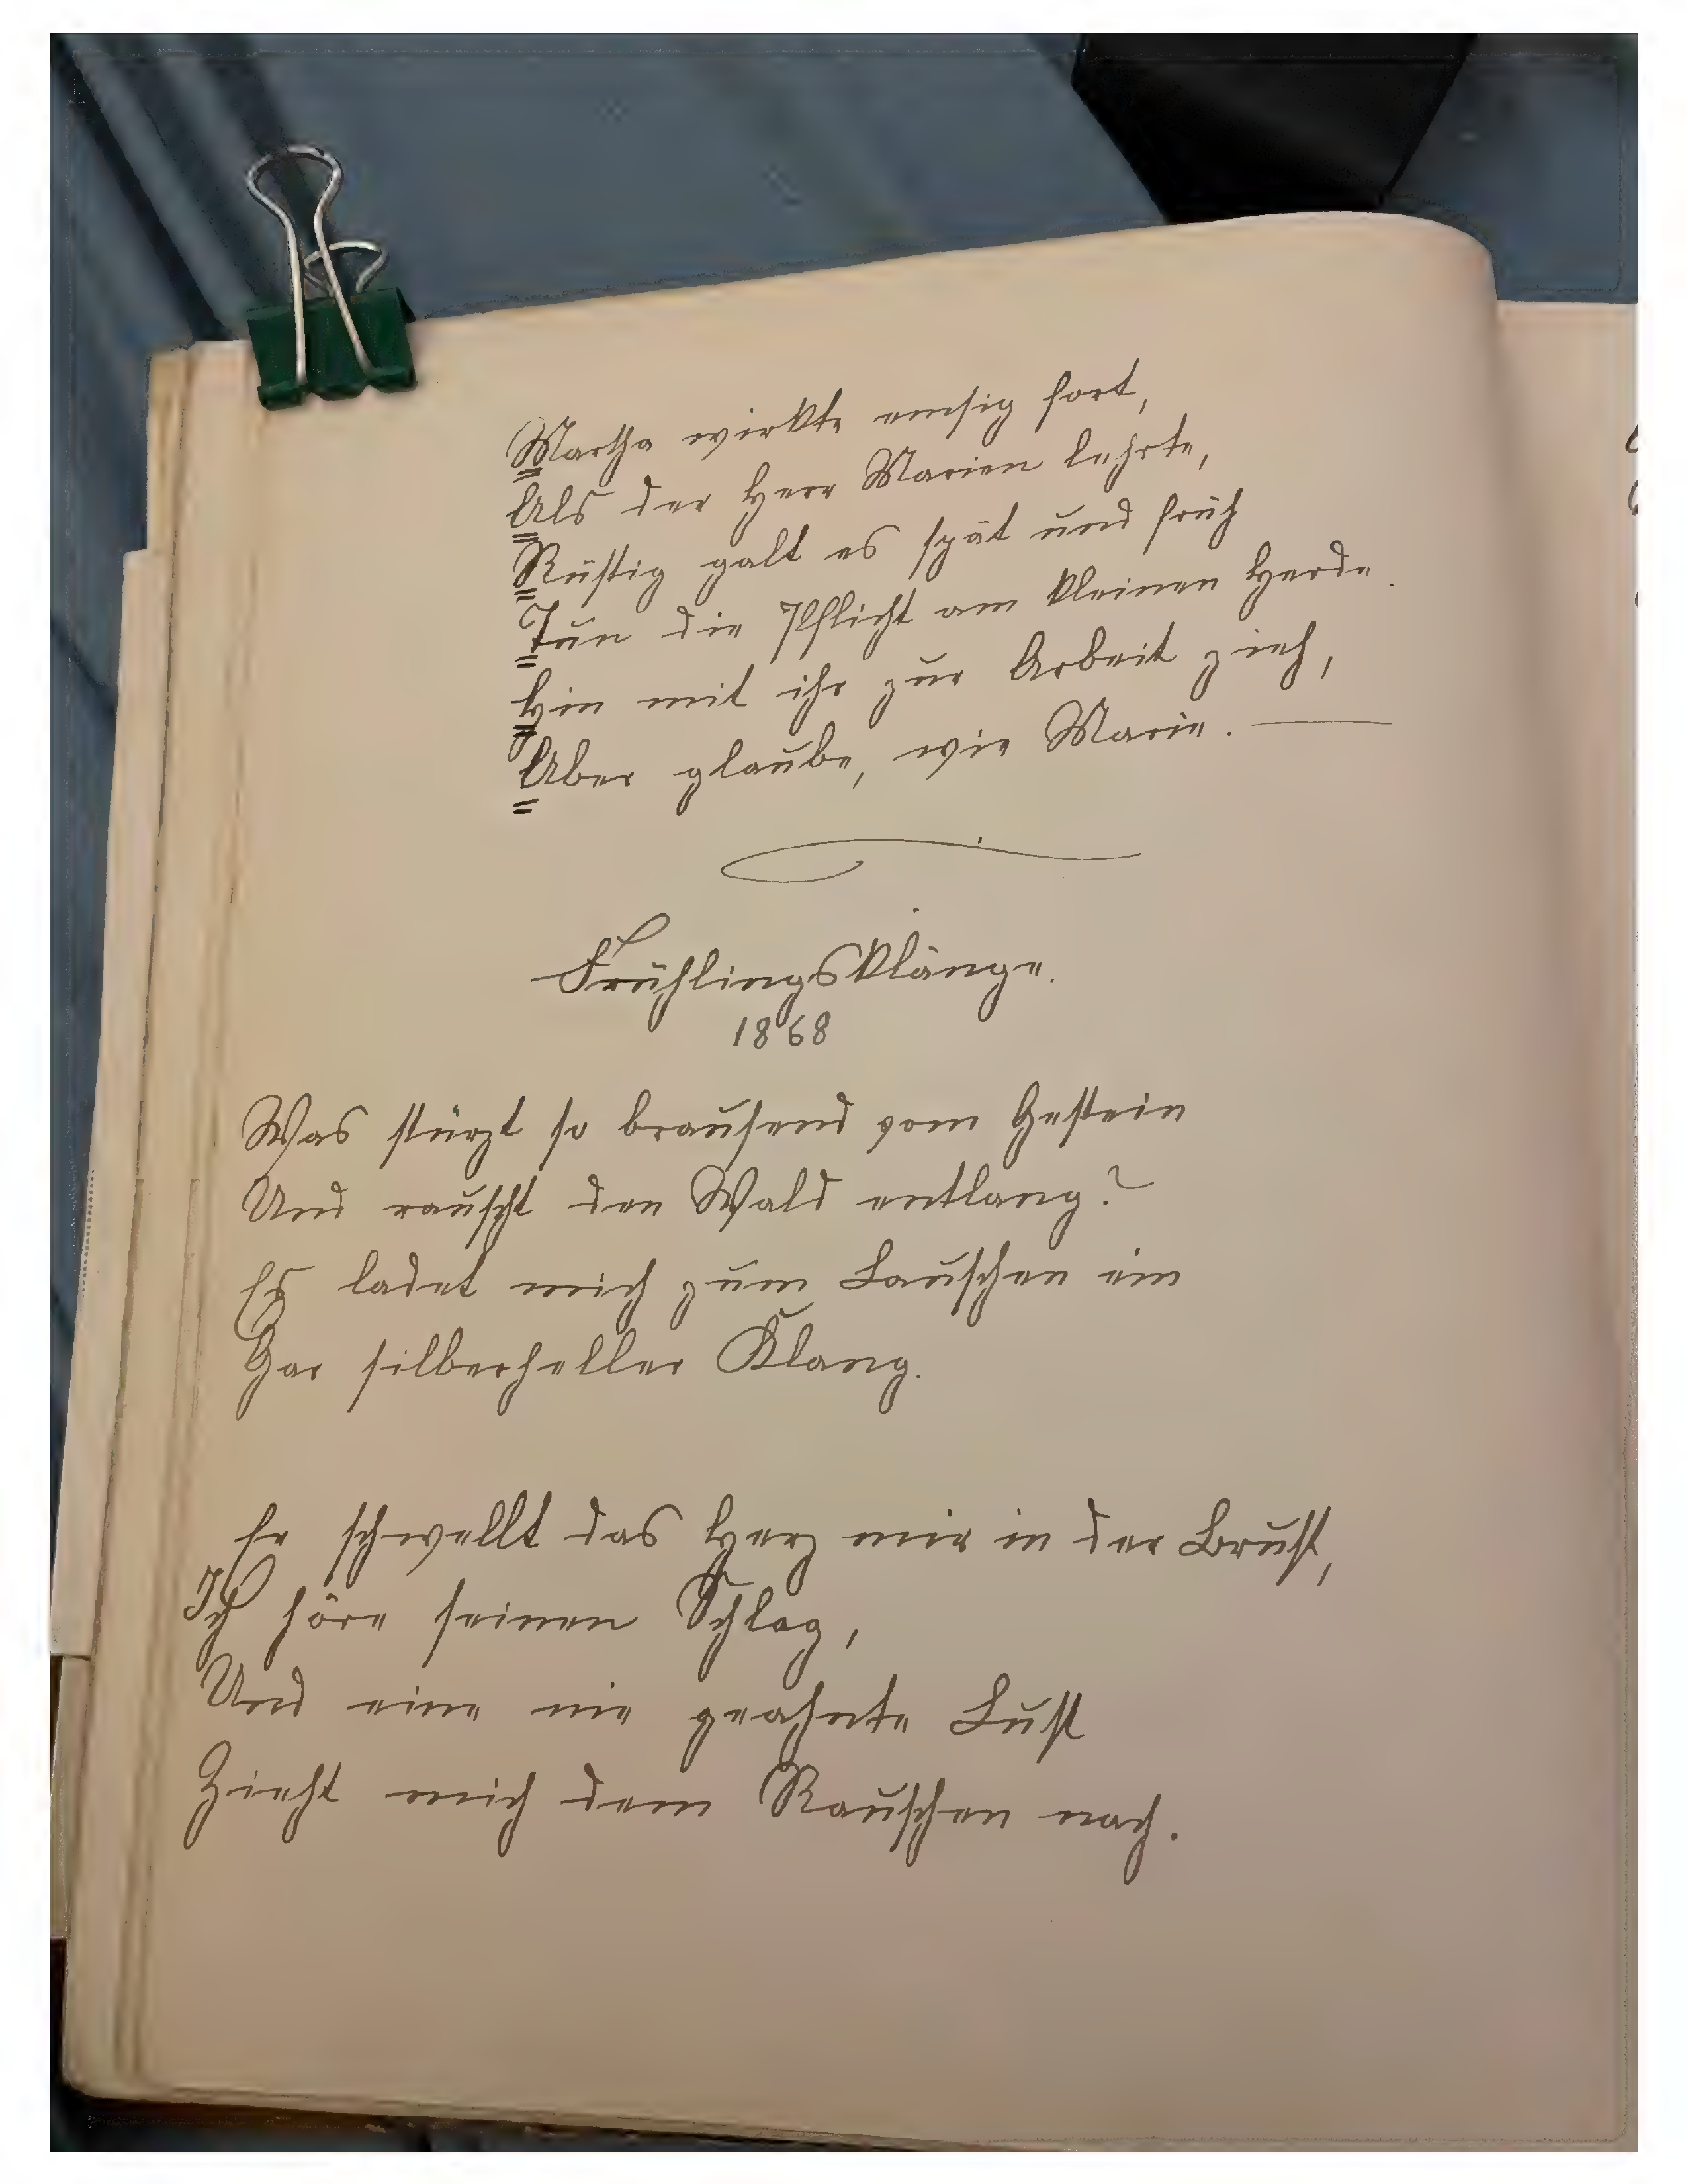 Martha wirkte emsig fort,
Als der Herr Marien lehrte,
Rüstig galt es spät und früh
Tun die Pflicht am kleinen Herde.
Hin mit ihr zur Arbeit zieh,
Aber glaube, wie Marie. —
Frühlingsklänge.
1868
Was stürzt so brausend vom Gestein
Und rauscht den Wald entlang?
Es ladet mich zum Lauschen ein
Gar silberheller Klang.
Er schwellt das Herz mir in der Brust,
Ich höre seinen Schlag,
Und eine nie geahnte Lust
Zieht mich dem Rauschen nach.